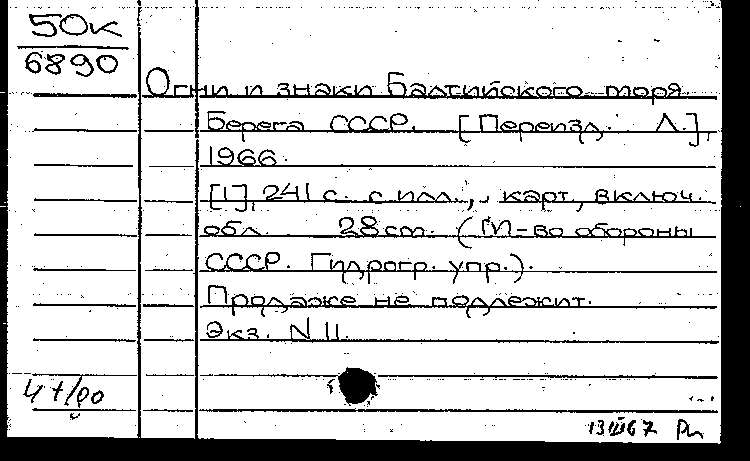 50к
6890
Огни и знаки Балтийского моря
Берега СССР. [Переизд. Л.],
1966.
[1], 241 с. с илл., карт, включ.
обл. 28 cm. (М-во обороны
СССР. Гидрогр. упр.).
Продаже не подлежит.
Экз. N 11.
13 III 67